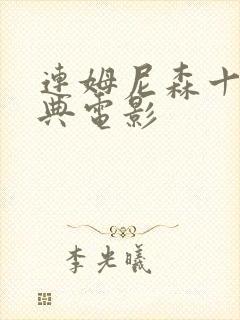 連姆尼森十
典電影
李光曦